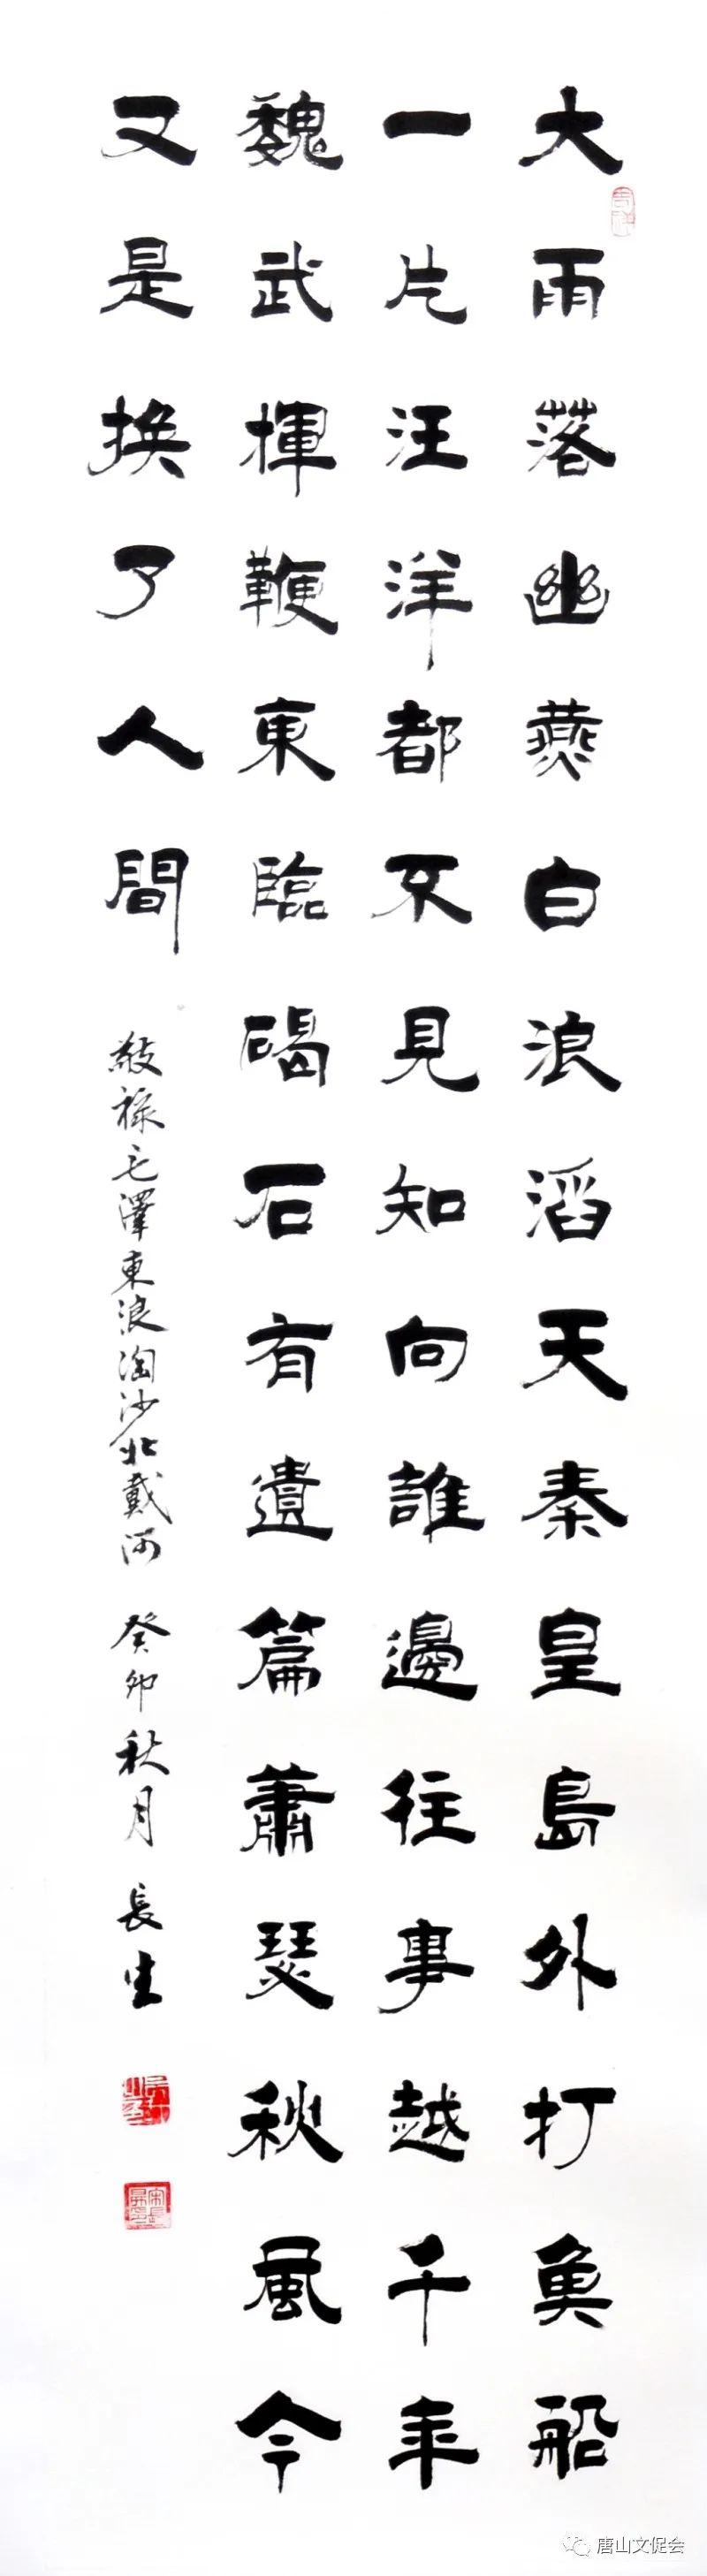 大雨落幽燕白浪滔天秦皇島外打魚船
一片汪洋都不見知向誰邊往事越千年
魏武揮鞭東臨碣石有遺篇蕭瑟秋風今
又是換了人間
敬錄毛澤東浪淘沙北戴河 癸卯秋月 長生
唐山文促会